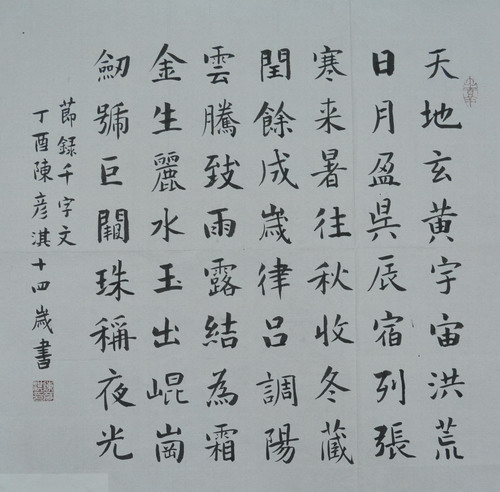 天地玄黃宇宙洪荒
日月盈昃辰宿列張
寒来暑往秋收冬藏
閏餘成歲律呂調陽
雲騰致雨露結為霜
金生麗水玉出崐崗
劒號巨闕珠稱夜光
節錄千字文
丁酉陳彦淇十四歲書